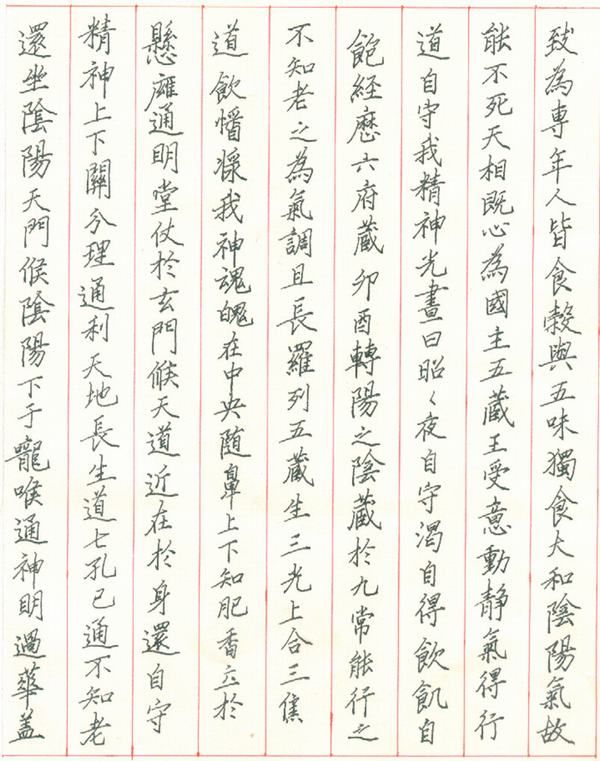 致為専年人皆食榖與五味獨食大和陰陽氣故
能不死天相既心為國主五藏王受意動静氣得行
道自守我精神光晝日昭々夜自守渴自得飲飢自
飽経歷六府藏卯酉轉陽之陰藏於九常能行之
不知老之為氣調且長羅列五藏生三光上合三焦
道飲懎漿我神魂魄在中央随鼻上下知肥香立於
懸䧹通明堂伏於玄門候天道近在於身還自守
精神上下關分理通利天地長生道七孔已通不知老
還坐陰陽天門候陰陽下于嚨喉通神明過華盖